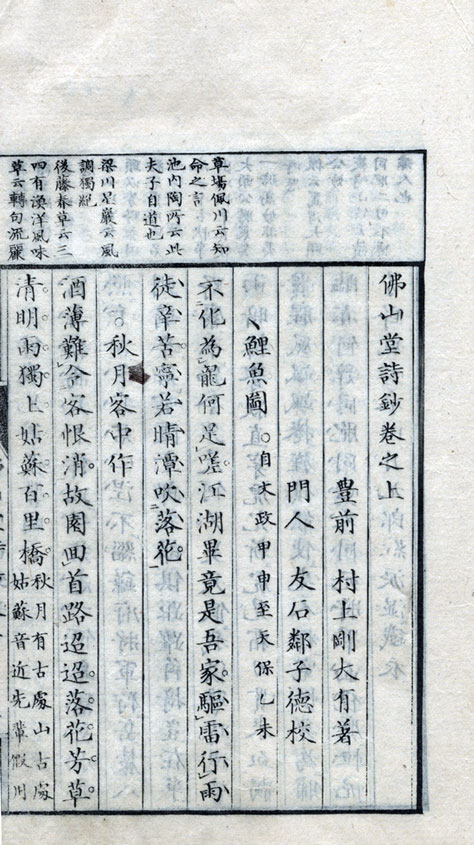 佛山堂詩鈔卷之上
豊前　村上剛大有著
門人　友石鄰子德校
鯉魚圖　自文政甲申至天保乙未
不化為龍何足嗟江湖畢竟是吾家驅雷行雨
徒辛苦寧若晴潭吹落花
秋月客中作
酒薄難令客恨消故園回首路迢迢落花芳草
清明雨獨上姑蘇百里橋
秋月有古處山古處
姑蘇音近先輩假用
草場佩川云知
命之言
池内陶所云此
夫子自道也
梁川星巖云風
調獨絕
後藤春草云三
四有渙洋風味
草云轉句流麗